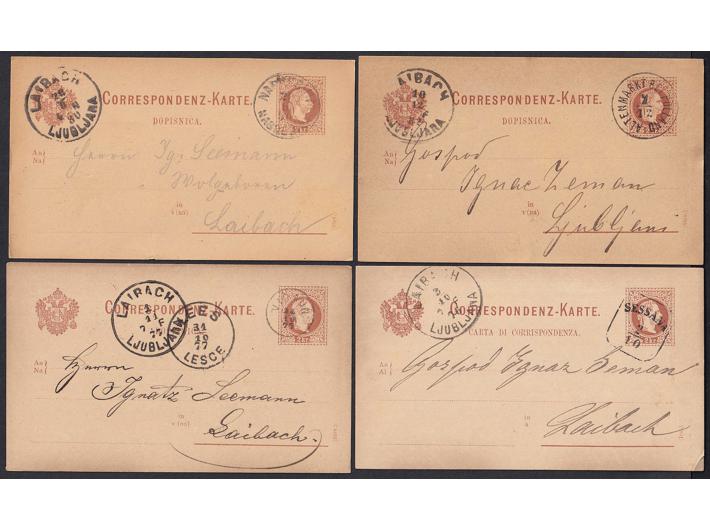 LAIBACH
LJUBLJANA
CORRESPONDENZ-KARTE.
DOPISNICA.
An
Na
Herrn Ig. Seemann
Wolgeboren
in
v (na)
Laibach
LAIBACH
10
12
LJUBLJANA
CORRESPONDENZ-KARTE.
DOPISNICA.
ALTENMARKT
1
12
An
Na
Gospod
Ignac Zeman
in
v (na)
Ljubljani
LAIBACH
LJUBLJANA
LEES
31
10
77
LESCE
CORRESPONDENZ-KARTE.
An
Na
Herrn
Ignatz Seemann
in
v (na)
Laibach.
LAIBACH
3
10
LJUBLJANA
CORRESPONDENZ-KARTE.
CARTA DI CORRISPONDENZA.
SESSANA
2
10
An
Al
Gospod Ignaz Zeman
in
a
Laibach